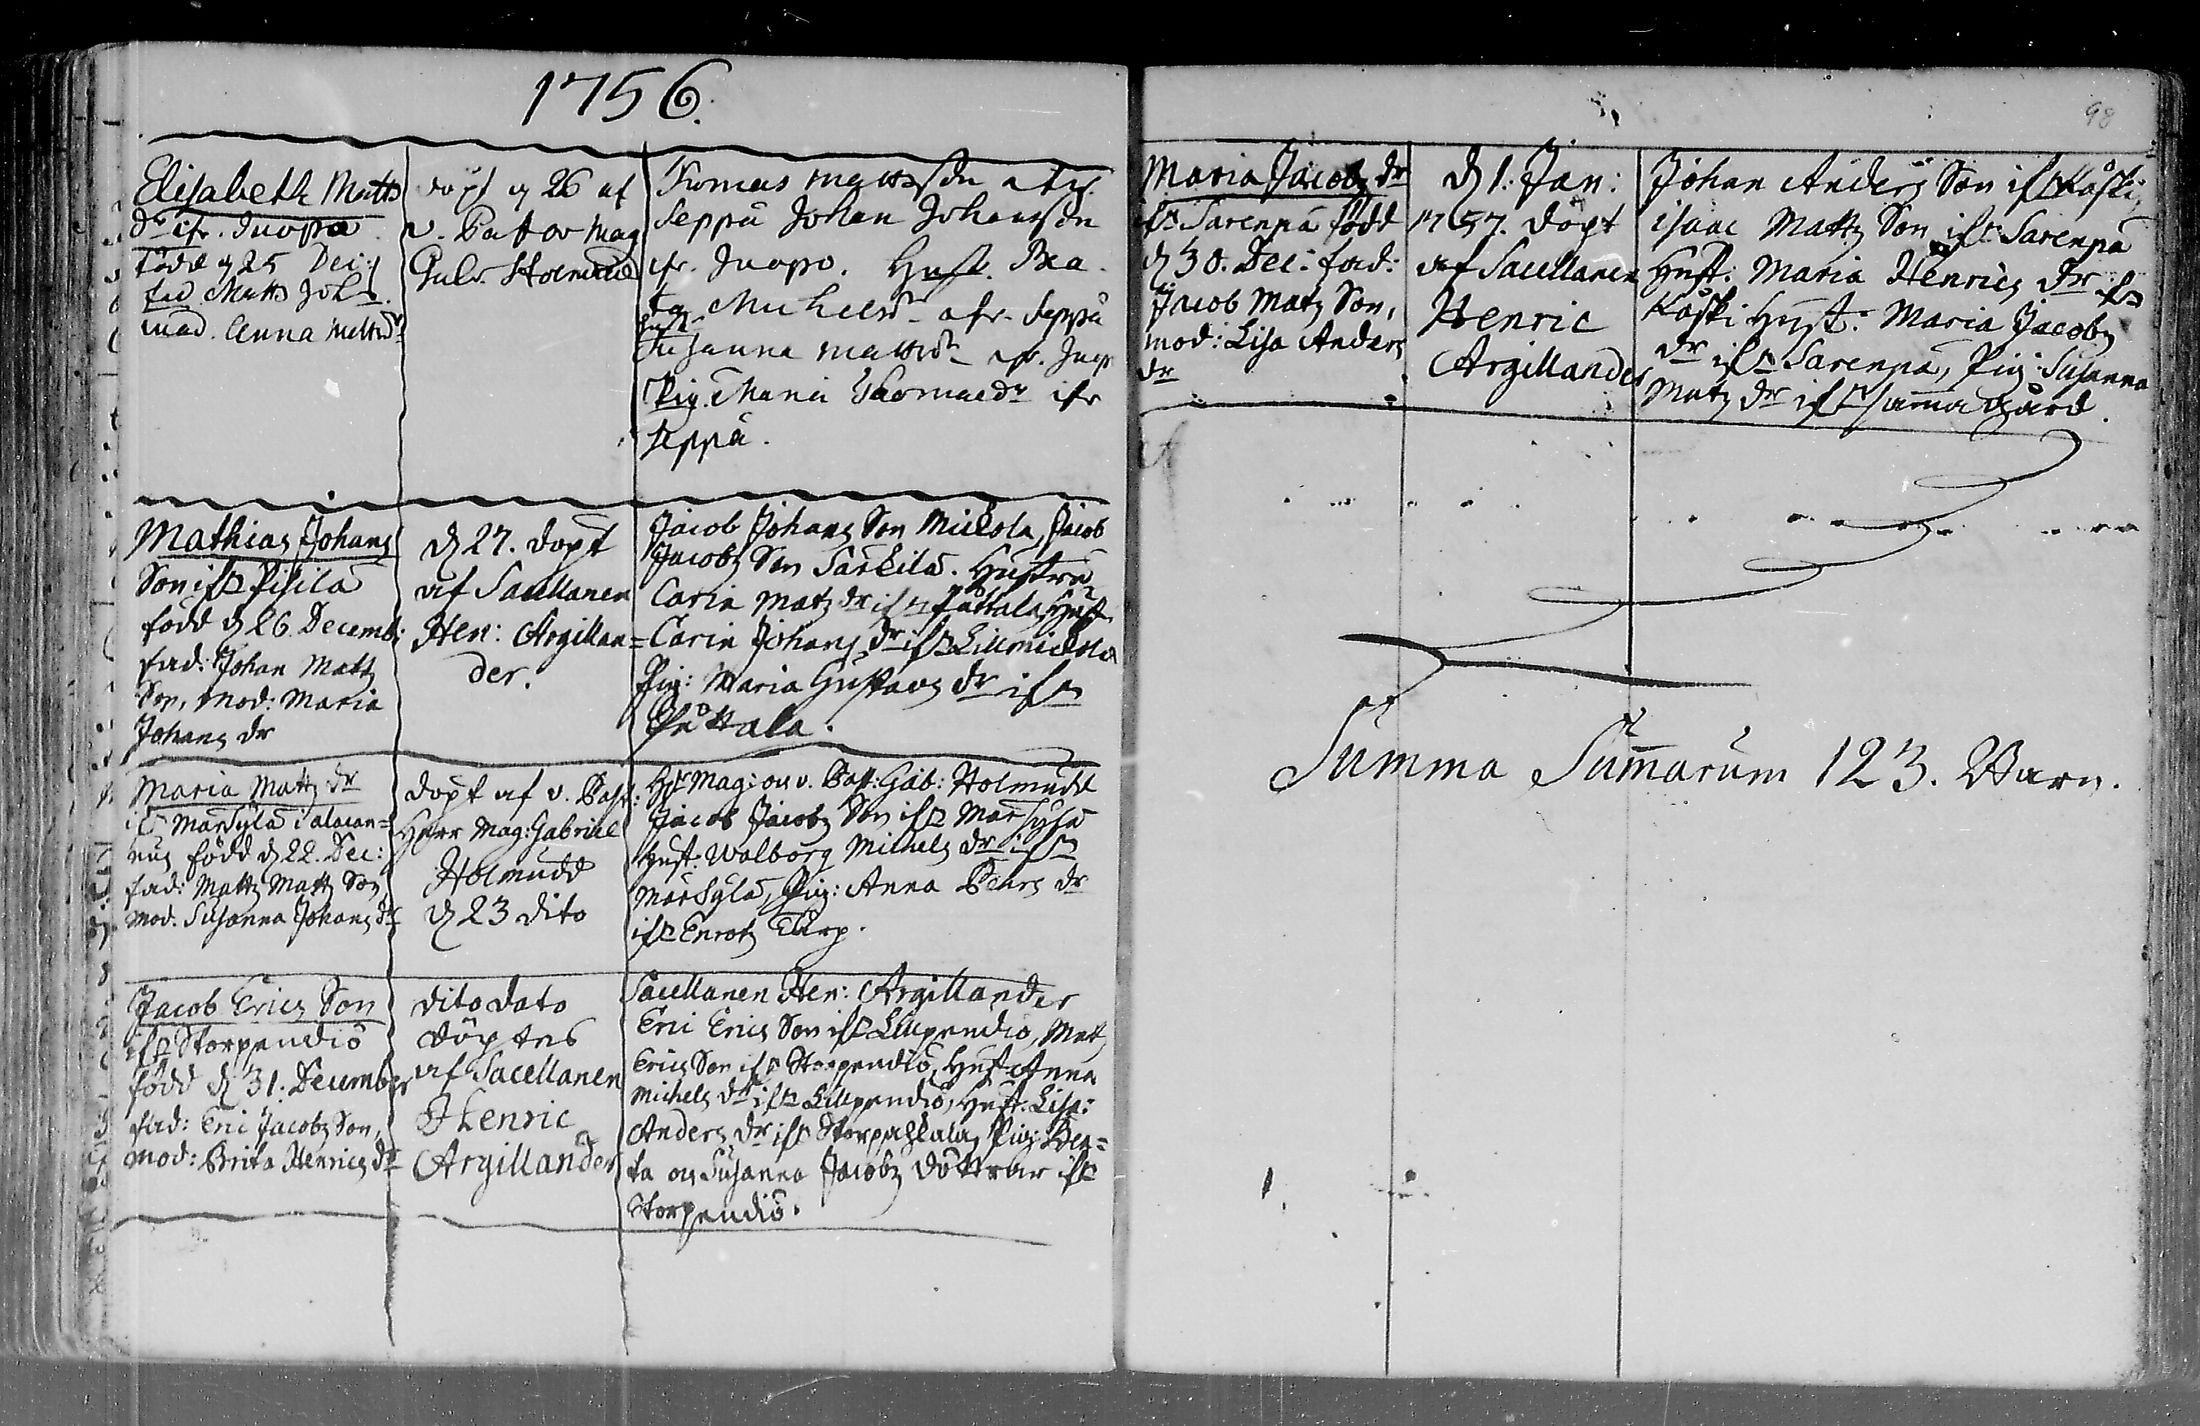 1756.
Elisabeth Matts
dr ifr. Juopa
född d 25 Dec:
fad Matts Joh
mad. Anna Mattsdr
döpt d 26 af
v. Pastor Mag
Holmudd
Thomas Mattsson
Seppä Johan Johansson
ifr. Juopo. Hust. Bea-
ta Michelsdr afr. Seppä
Hust
Susanna Mattsdr ifr. Juop
Pig. Maria Thomaedr ifr
Seppä.
Mathias Johans
Son ifrn Pisilä
född d 26 Decemb:
fad: Johan Matts
Son, mod: Maria
Johans dr
d 27. döpt
af Sacellanen
Hen: Argillan=
der.
Jacob Johans Son Mickola, Jacob
Jacobs Son Särkilä. Hustru
Carin Mats dr ifrn Hust
Carin Johans dr ifrn Lillmickola
Pig: Maria Gustavs dr ifrn
Maria Matts dr
Marsylä
född d 22. Dec:
fad: Matts Matts Son
mod. Susanna Johans dr
döpt af v. Past:
Herr Mag: Gabriel
Holmudd
d 23 dito
Hr Mag: och v. Past: Gab: Holmudd
Jacob Jacobs Son ifrn Marsylä
Hust. Walborg Michels dr ifrn
Marsylä, Pig: Anna Pehrs dr
ifrn Enrots Torp.
Jacob Erics Son
ifrn Storpendiö
född d 31. December
fad: Eric Jacobs Son,
mod: Brita Henrics dr
dito dato
döptes
af Sacellanen
Henric
Argillander
Sacellanen Hen: Argillander
Eric Erics Son ifrn Lillpendiö, Mats
Erics Son ifrn Storpendiö, Hust Anna
Michels dr ifrn Lillpendiö, Hust. Lisa:
Anders dr ifrn Pig: Bea=
ta och Susanna Jacobs döttrar ifrn
Storpendiö.
98
Maria Jacobs dr
ifrn Sarenpä född
d 30. Dec: fad:
Jacob Mats Son,
mod: Lisa Anders
dr
d 1. Jan:
1757. döpt
af Sacellanen
Henric
Argillander
Johan Anders Son ifrn Koski,
Isaac Matts Son ifrn Sarenpä
Hust. Maria Henrics dr ifrn
Koski Hust. Maria Jacobs
dr ifrn Sarenpä, Pig: Susanna
Mats dr ifrn samma gård.
Summa Summarum 123. Barn.